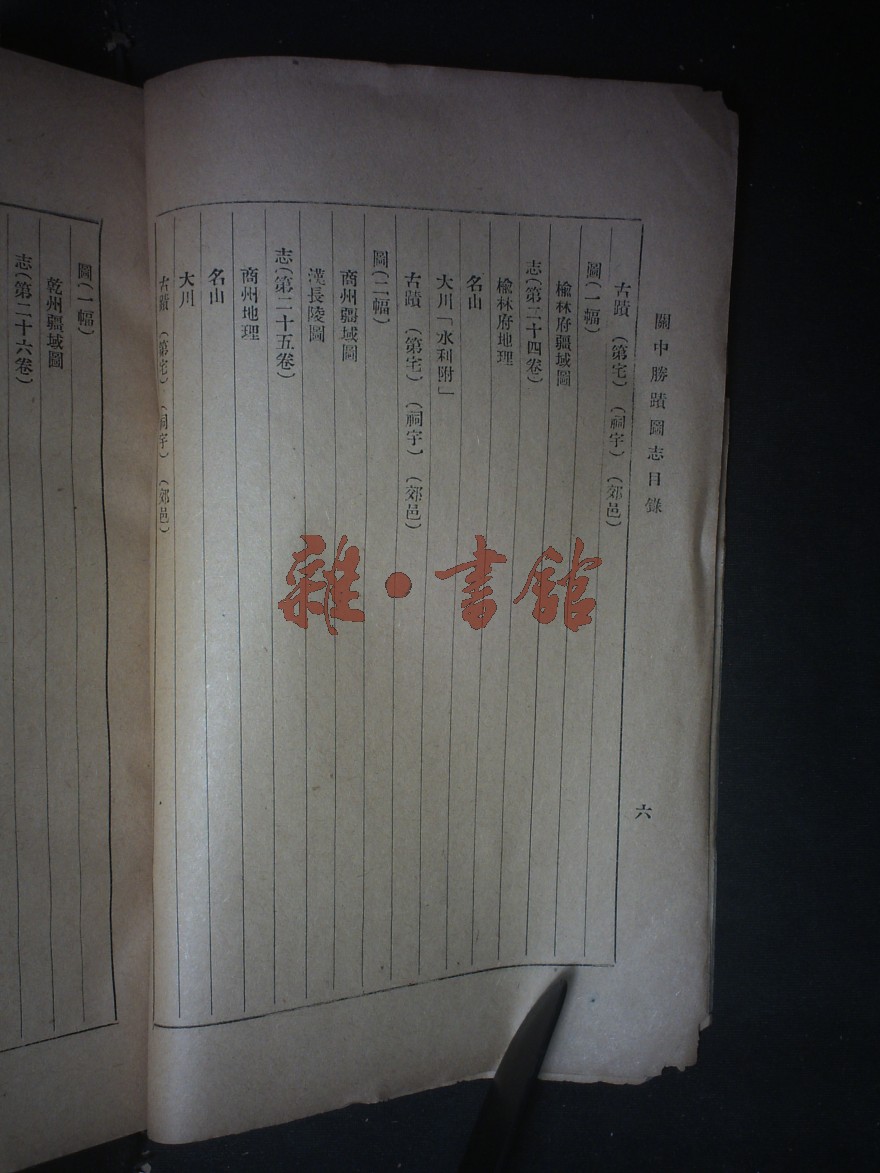 關中勝蹟圖志目錄
六
古蹟（第宅）（祠宇）（郊邑）
圖（一幅）
榆林府疆域圖
志（第二十四卷）
榆林府地理
名山
大川「水利附」
古蹟（第宅）（祠宇）（郊邑）
圖（二幅）
商州疆域圖
漢長陵圖
志（第二十五卷）
商州地理
名山
大川
古蹟（第宅）（祠宇）（郊邑）
圖（一幅）
乾州疆域圖
志（第二十六卷）
雜·書館